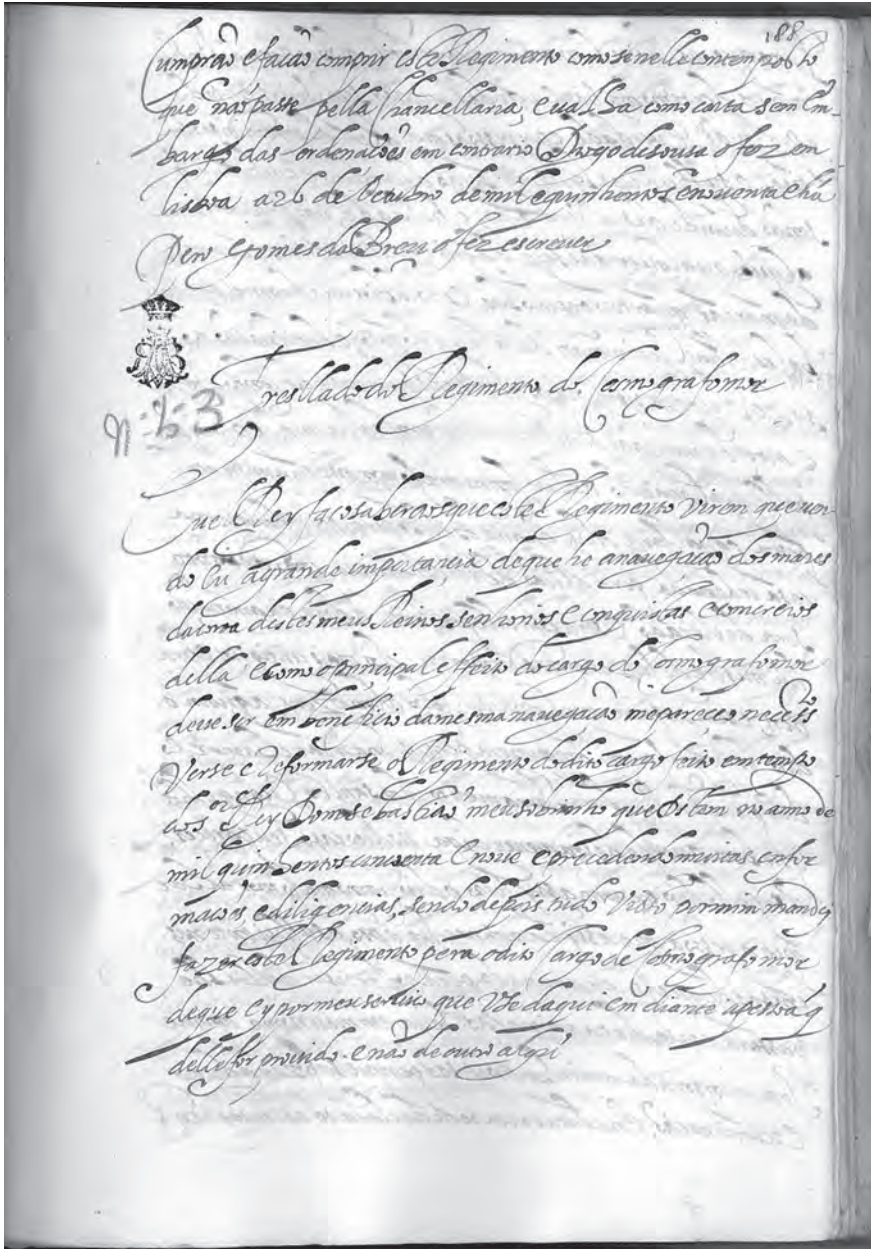 188
Cumprão e fação comprir este Regimento como se nelle contem posto
que não passe pella Chancellaria, e valha como carta sem Em-
bargo das ordenações em contrario Diogo de sousa o fez em
lisboa a 26 de Octubro de mil e quinhentos e nouenta e hũ
Pero gomes da Breu o fez escreuer
Tresllado do Regimento do Cosmografo mor
Eu el Rey faço saber aos que este Regimento virem que ven
do Eu a grande importançia de que he a navegação dos mares
da coroa destes meus Reinos, senhorios e conquistas e comercios
della e como o prinçipal effeito do cargo do Cosmografo mor
deue ser em beneficio da mesma navegação me pareceo necessrio
Verse e Reformarse o Regimento do dito cargo feito em tempo
del Rey Dom sebastiaõ meu sobrinho que Ds tem no anno de
mil quinhentos cincoenta e noue e precedendo muitas enfor
maçois, e diligencias, sendo depois tudo visto por mim mandey
fazer este Regimento pera o dito Cargo de Cosmografo mor
de que ey por meu seruiço que Vse daqui em diante a pessoa q̃
delle for prouido. e não de outro algũ